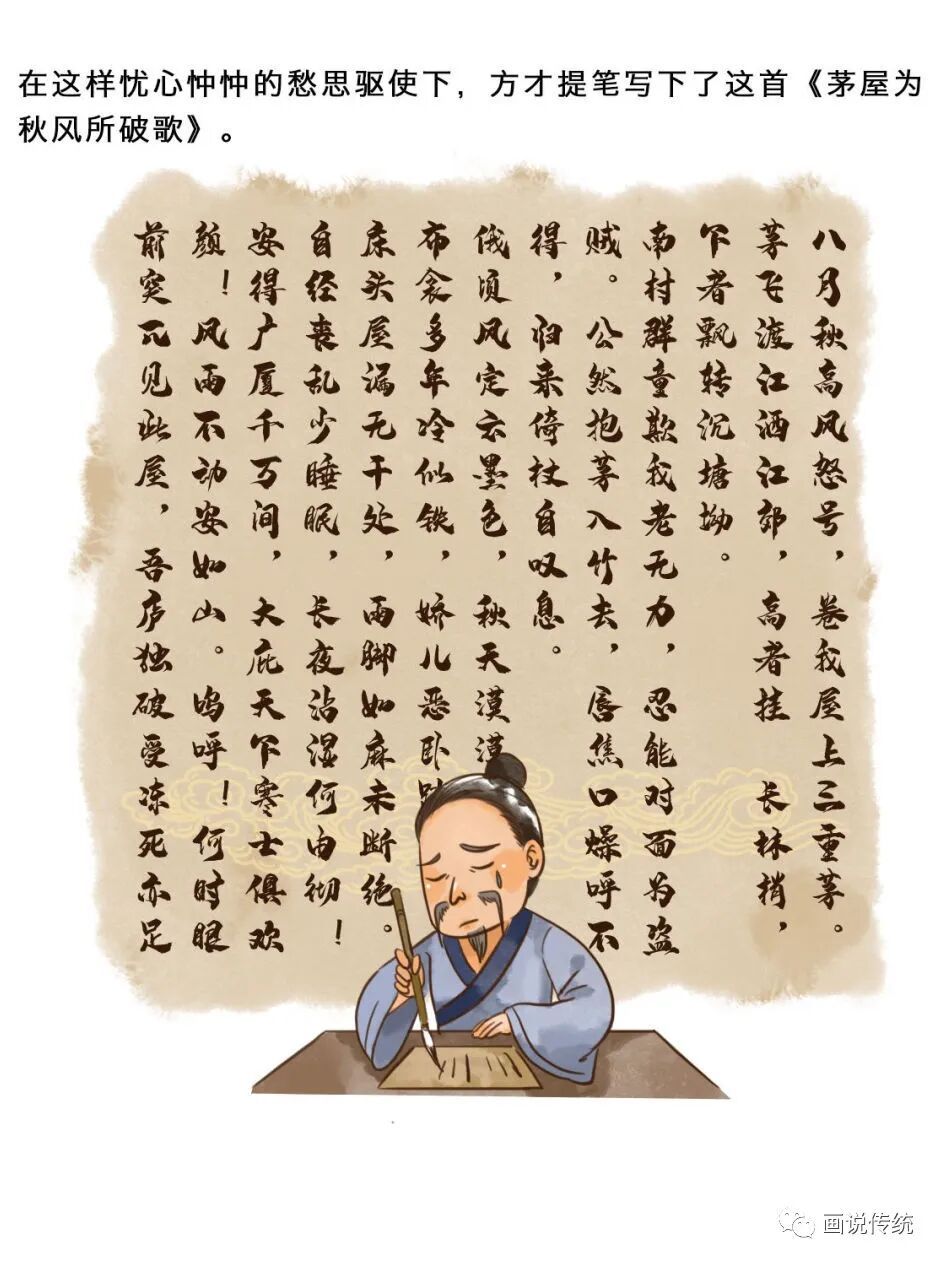 在这样忧心忡忡的愁思驱使下，方才提笔写下了这首《茅屋为
秋风所破歌》。
八月秋高风怒号，卷我屋上三重茅。
茅飞渡江洒江郊，高者挂 长林梢，
下者飘转沉塘坳。
南村群童欺我老无力，忍能对面为盗
贼。公然抱茅入竹去，唇焦口燥呼不
得，归来倚杖自叹息。
俄顷风定云墨色，秋天漠漠
布衾多年冷似铁，娇儿恶卧
床头屋漏无干处，雨脚如麻未断绝。
自经丧乱少睡眠，长夜沾湿何由彻！
安得广厦千万间，大庇天下寒士俱欢
颜！风雨不动安如山。呜呼！何时眼
前突兀见此屋，吾庐独破受冻死亦足
画说传统